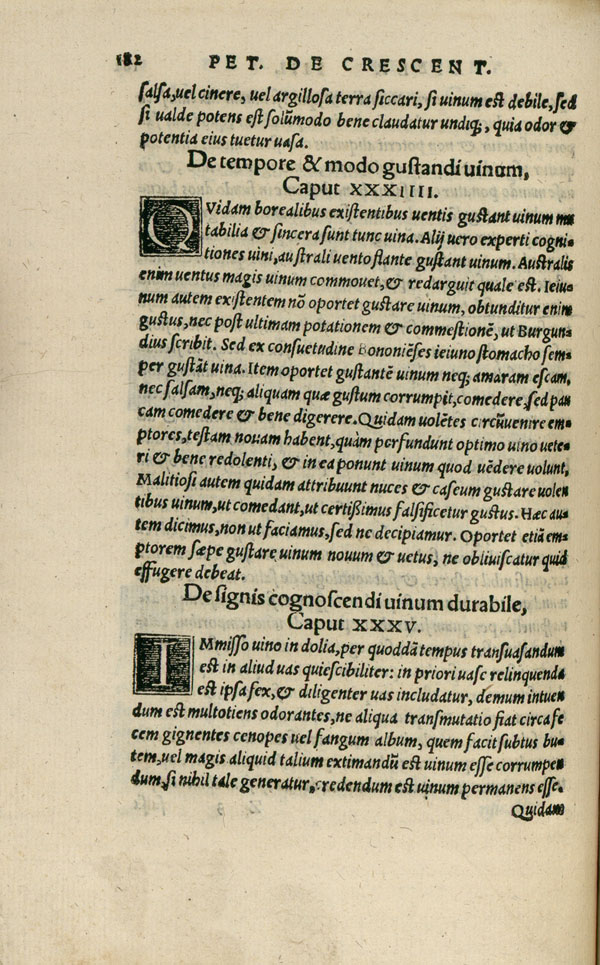 182 PET. DE CRESCENT.
salsa, uel cinere, uel argillosa terra siccari, si uinum est debile, sed
si ualde potens est solūmodo bene claudatur undiq;, quia odor &
potentia eius tuetur uasa.
De tempore & modo gustandi uinum,
Caput XXXIIII.
QVidam borealibus existentibus uentis gustant uinum mu
tabilia & sincera sunt tunc uina. Alij uero experti cogni-
tiones uini, australi uento flante gustant uinum. Australis
enim uentus magis uinum commouet, & redarguit quale est. Ieiu-
num autem existentem nō oportet gustare uinum, obtunditur enim
gustus, nec post ultimam potationem & commestionē, ut Burgun-
dius scribit. Sed ex consuetudine Bononiēses ieiuno stomacho sem-
per gustāt uina. Item oportet gustantē uinum neq; amaram escam,
nec salsam, neq; aliquam quæ gustum corrumpit, comedere, sed pau
cam comedere & bene digerere. Quidam uolētes circūuenire em-
ptores, testam nouam habent, quàm perfundunt optimo uino uete-
ri & bene redolenti, & in ea ponunt uinum quod uēdere uolunt,
Malitiosi autem quidam attribuunt nuces & caseum gustare uolen
tibus uinum, ut comedant, ut certißimus falsificetur gustus. Hæc au-
tem dicimus, non ut faciamus, sed ne decipiamur. Oportet etiā em-
ptorem sæpe gustare uinum nouum & uetus, ne obliuiscatur quid
effugere debeat.
De signis cognoscendi uinum durabile,
Caput XXXV.
IMmisso uino in dolia, per quoddā tempus transuasandum
est in aliud uas quiescibiliter: in priori uase relinquenda
est ipsa fex, & diligenter uas includatur, demum intuen
dum est multotiens odorantes, ne aliqua transmutatio fiat circa fe
cem gignentes cenopes uel fangum album, quem facit subtus bu-
tem, uel magis aliquid talium extimandū est uinum esse corrumpen
dum, si nihil tale generatur, credendum est uinum permanens esse.
Quidam